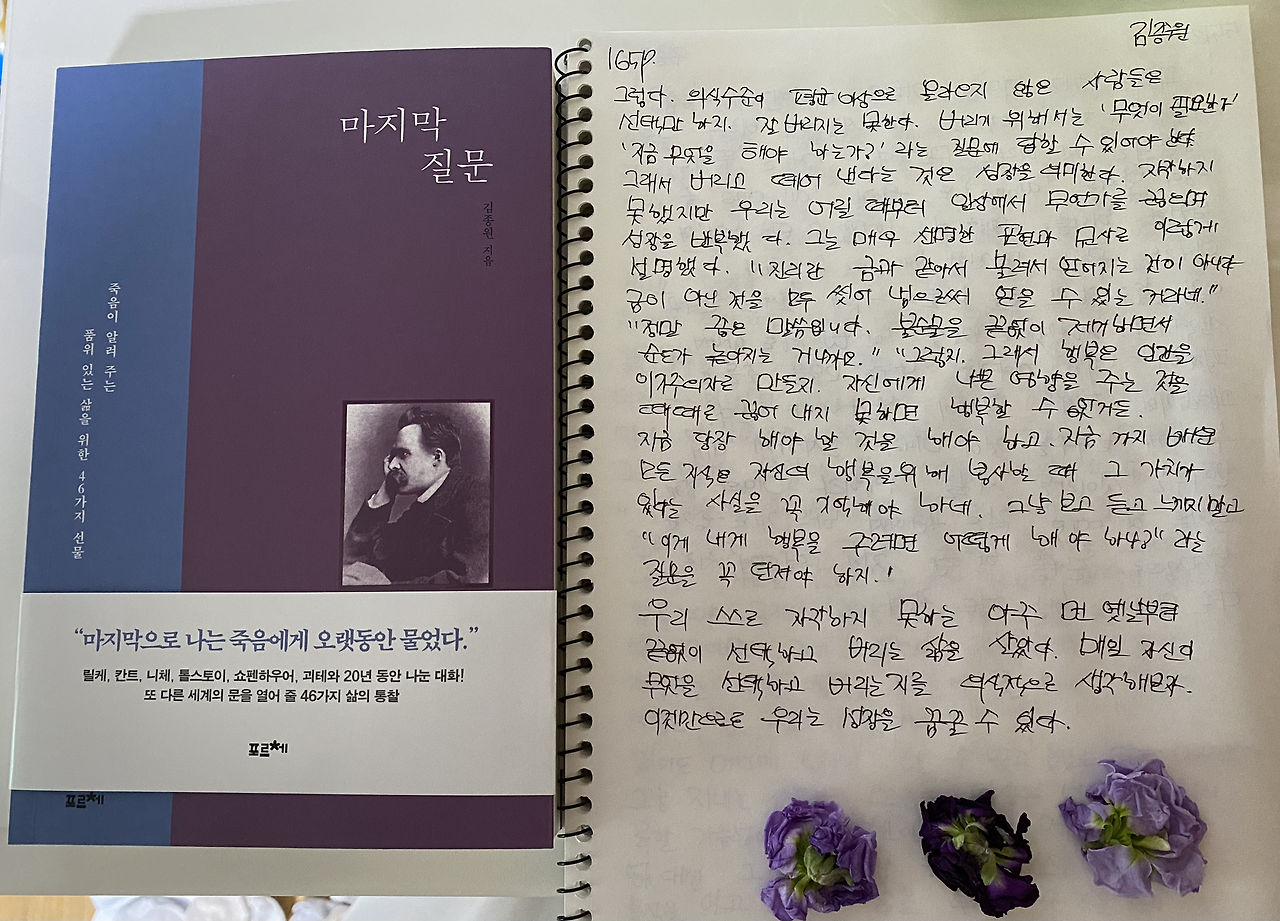 마지막
질문
김종원 지음
죽음이 알려 주는
품위 있는 삶을 위한 46가지 선물
“마지막으로 나는 죽음에게 오랫동안 물었다.”
릴케, 칸트, 니체, 톨스토이, 쇼펜하우어, 괴테와 20년 동안 나눈 대화!
또 다른 세계의 문을 열어 줄 46가지 삶의 통찰
포르체
포르체
김종원
165p.
그렇다. 의식수준이 평균 이상으로 올라오지 않은 사람들은
선택만 하지. 잘 버리지는 못한다. 버리기 위해서는 '무엇이 필요한가'
'지금 무엇을 해야 하는가?' 라는 질문에 답할 수 있어야 한다
그래서 버리고 떼어 낸다는 것은 성장을 의미한다. 자각하지
못했지만 우리는 어릴 때부터 일상에서 무언가를 끊으며
성장을 반복했다. 그는 매우 선명한 표현과 묘사로 이렇게
설명했다. "진리란 금과 같아서 불려서 얻어지는 것이 아니라
금이 아닌 것을 모두 씻어 냄으로써 얻을 수 있는 거라네."
"정말 좋은 말씀입니다. 불순물을 끝없이 제거하면서
순도가 높아지는 거니까요." "그렇지. 그래서 행복은 인간을
이기주의자로 만들지. 자신에게 나쁜 영향을 주는 것을
때때로 끊어 내지 못하면 행복할 수 없거든.
지금 당장 해야 할 것을 해야 하고. 지금 까지 배운
모든 지식은 자신의 행복을위해 봉사할 때 그 가치가
있다는 사실을 꼭 기억해야 하네. 그냥 보고 듣고 느끼지 말고
"이게 내게 행복을 주려면 어떻게 해야 하나?" 라는
질문을 꼭 던져야 하지.'
우리 스스로 자각하지 못하는 아주 먼 옛날부터
끝없이 선택하고 버리는 삶을 살았다. 매일 자신이
무엇을 선택하고 버리는지를 의식적으로 생각해보자.
이것만으로도 우리는 성장을 꿈꿀 수 있다.